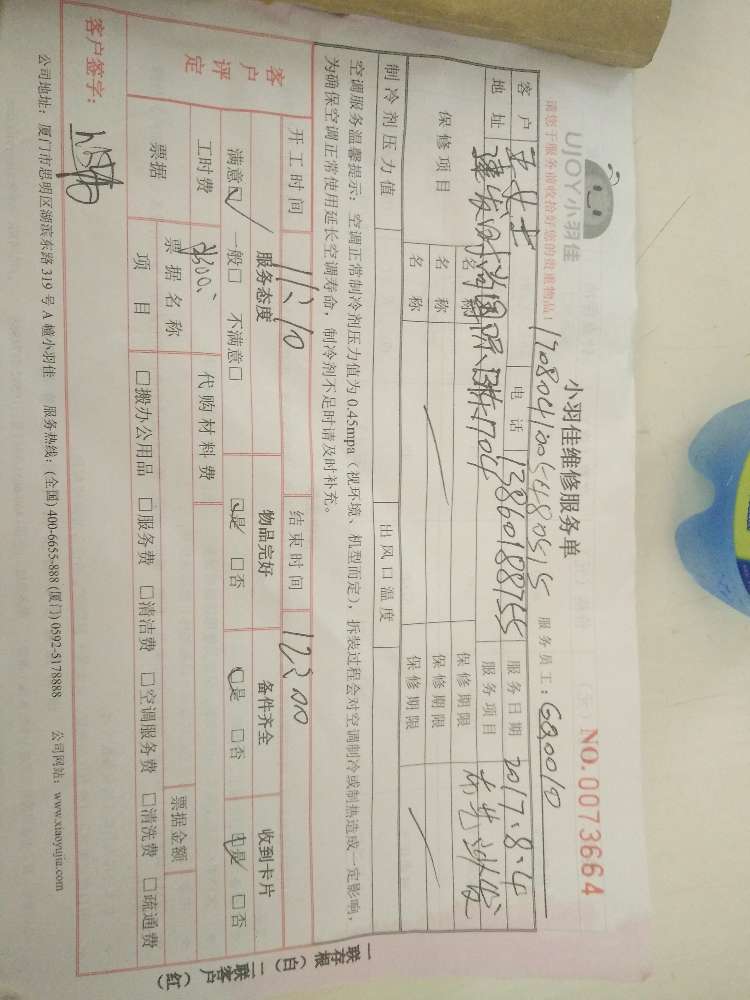 UJOY小羽佳
小羽佳维修服务单
NO.0073664
请您于服务前收拾好您的贵重物品!
服务员工:
客户 电话 13860188755 服务日期 2017.8.4
地址 服务项目
保修项目 名称 保修期限
名称 保修期限
名称 保修期限
制冷剂压力值 出风口温度
空调服务温馨提示:空调正常制冷剂压力值为0.45mpa(视环境、机型而定),拆装过程会对空调制冷或制热造成一定影响,
为确保空调正常使用延长空调寿命,制冷剂不足时请及时补充。
开工时间 11:10 结束时间 12:00
客户评定 服务态度 物品完好 备件齐全 收到卡片
满意□ 一般□ 不满意□ □是 □否 □是 □否 □是 □否
工时费 代购材料费
票据 票据名称 票据金额
项目 □搬办公用品 □服务费 □清洁费 □空调服务费 □清洗费 □疏通费
客户签字:
公司地址:厦门市思明区湖滨东路319号A幢小羽佳 服务热线:(全国)400-6655-888(厦门)0592-5178888 公司网站:www.xiaoyujia.com
一联存根(白) 二联客户(红)